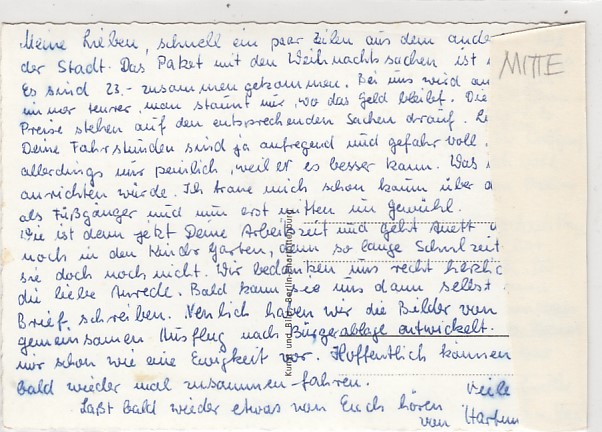 Meine Lieben, schnell ein paar Zeilen aus dem ande
der Stadt. Das Paket mit den Weihnachtssachen ist
Es sind 23.- zusammengekommen. Bei uns wird au
immer teurer, man staunt nur, wo das Geld bleibt. Die
Preise stehen auf den entsprechenden Sachen drauf.
Deine Fahrstunden sind ja aufregend und gefahrvoll.
allerdings nur peinlich, weil er es besser kann. Was
anrichten würde. Ich traue mich schon kaum über
als Füßgänger und nun erst mitten im Gewühl.
Wie ist denn jetzt Deine Arbeitszeit und geht Anett
noch in den Kindergarten, denn so lange Schulzeit
sie doch noch nicht. Wir bedanken uns recht herzlic
die liebe Anrede. Bald kann sie uns dann selbst
Brief schreiben. Neulich haben wir die Bilder vom
gemeinsamen Ausflug nach Bürgerablage entwickelt.
mir schon wie eine Ewigkeit vor. Hoffentlich können
bald wieder mal zusammen fahren.
Viele
Laßt bald wieder etwas von Euch hören
von
MITTE
Kunst und Bild, Berlin-Charlottenburg